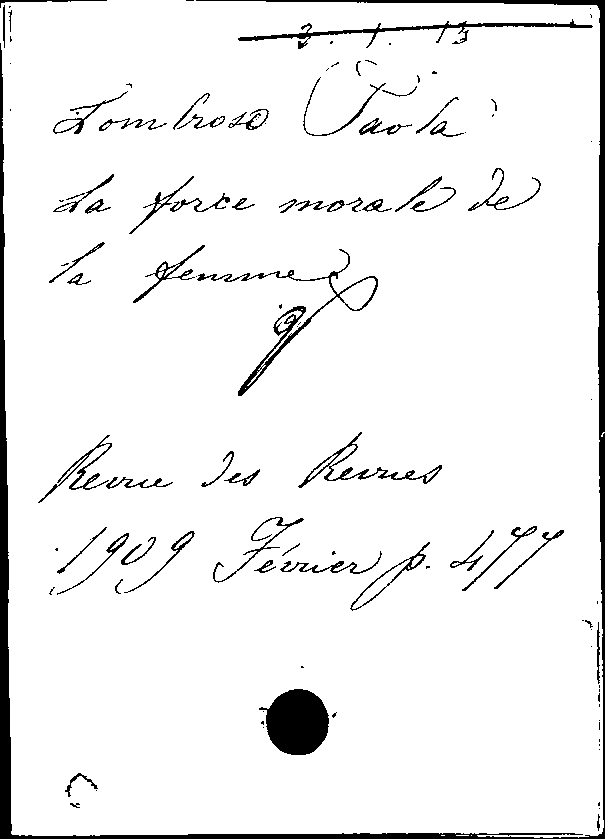 2. 1. 13
Lombroso (Paola)
La force morale de
la femme
Revue des Revues
1909 Février p. 477